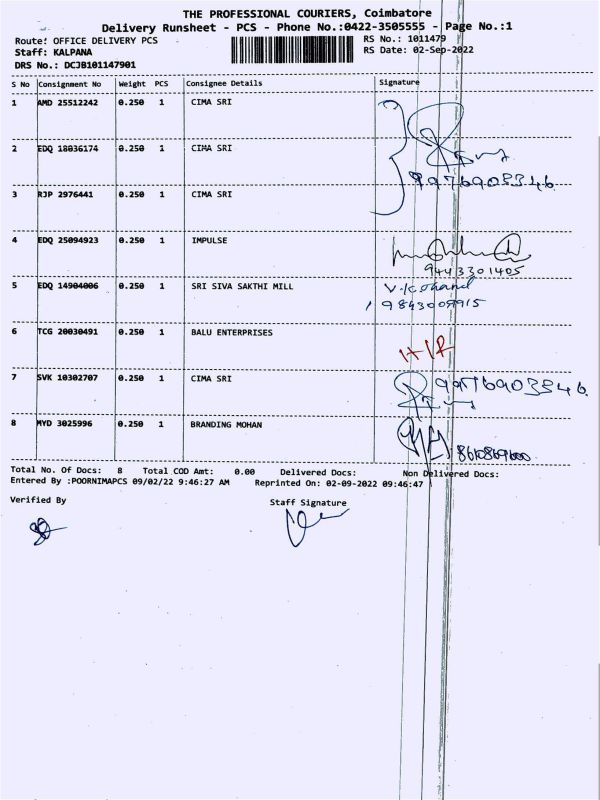 THE PROFESSIONAL COURIERS, Coimbatore
Delivery Runsheet - PCS - Phone No.:0422-3505555 - Page No.:1
Route: OFFICE DELIVERY PCS RS No.: 1011479
Staff: KALPANA RS Date: 02-Sep-2022
DRS No.: DCJB101147901
S No Consignment No Weight PCS Consignee Details Signature
1 AMD 25512242 0.250 1 CIMA SRI
2 EDQ 18036174 0.250 1 CIMA SRI
3 RJP 2976441 0.250 1 CIMA SRI
4 EDQ 25094923 0.250 1 IMPULSE
9443301405
5 EDQ 14904006 0.250 1 SRI SIVA SAKTHI MILL
6 TCG 20030491 0.250 1 BALU ENTERPRISES
7 SVK 10302707 0.250 1 CIMA SRI
8 MYD 3025996 0.250 1 BRANDING MOHAN
Total No. Of Docs: 8 Total COD Amt: 0.00 Delivered Docs: Non Delivered Docs:
Entered By :POORNIMAPCS 09/02/22 9:46:27 AM Reprinted On: 02-09-2022 09:46:47
Verified By Staff Signature